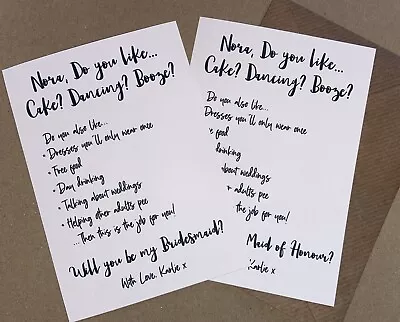 Nora, Do you like...
Cake? Dancing? Booze?
Do you also like...
• Dresses you'll only wear once
• Free food
• Day drinking
• Talking about weddings
• Helping other adults pee
...Then this is the job for you!
Will you be my Bridesmaid?
With Love, Karlie x
Nora, Do you like...
Cake? Dancing? Booze?
Do you also like...
Dresses you'll only wear once
e food
drinking
about weddings
adults pee
the job for you!
Maid of Honour?
Karlie x